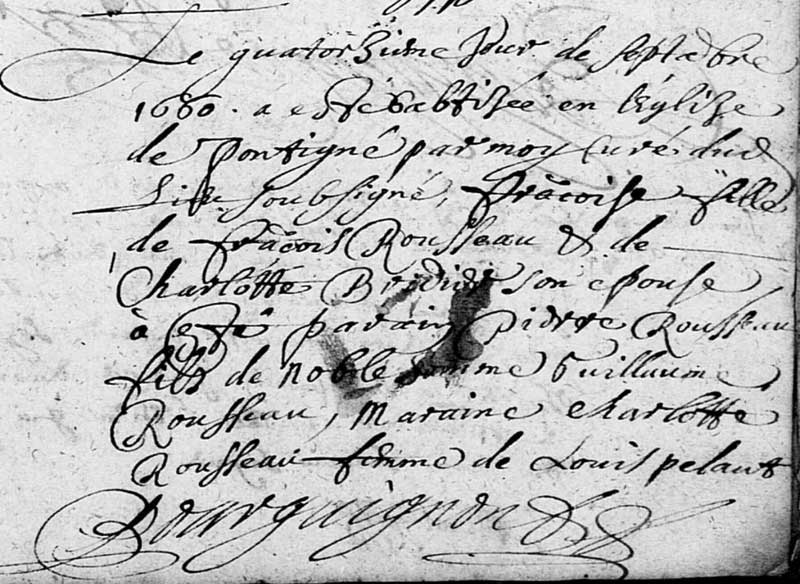 Le quatorsieme Jour de septēbre
1680. a esté baptisée en l'Eglise
de Pontigné par moy Curé dud
Lieu soubsigné, frācoise fille
de frācois Rousseau & de
Charlotte Bridier son epouse
à esté parain Pierre Rousseau
fils de noble homme Guillaume
Rousseau, Maraine charlotte
Rousseau femme de Louis pelaut
Bourguignon